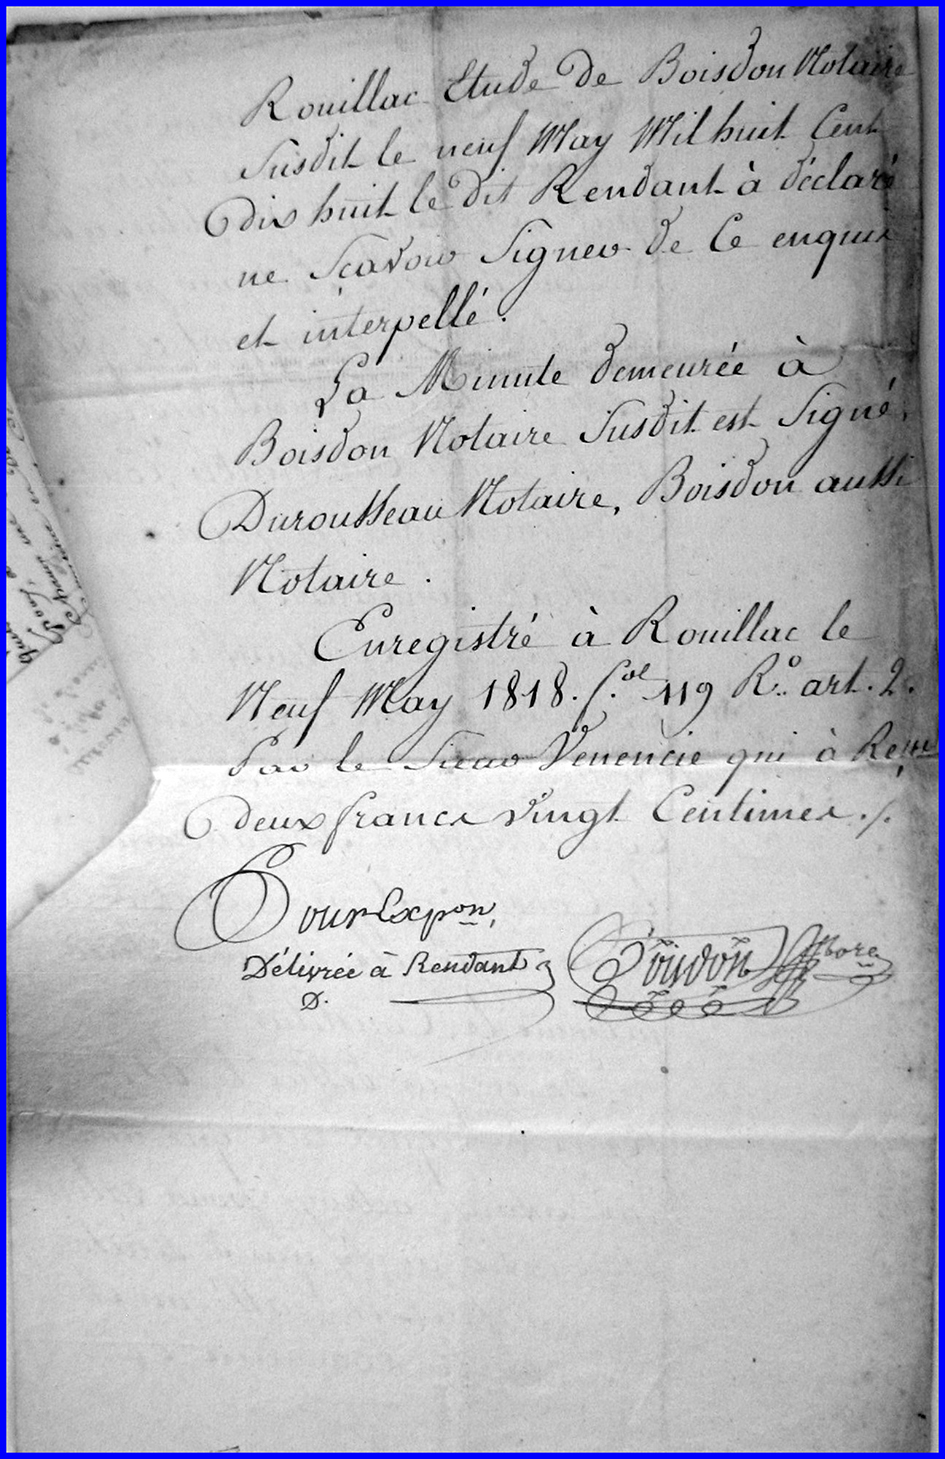 Rouillac Etude de Boisdon Notaire
Susdit le neuf May Mil huit Cent
dix huit le dit Rendant à déclaré
ne Scavoir Signer de Ce enquis
et interpellé.
La Minute demeurée à
Boisdon Notaire Susdit est Signé,
Durousseau Notaire, Boisdon aussi
Notaire.
Enregistré à Rouillac le
Neuf May 1818. fol. 119 Ro. art. 2.
Par le Sieur Venencie qui à
deux francs vingt Centimes ./.
Pour Expon,
Délivrée à Rendant
D.
Boisdon